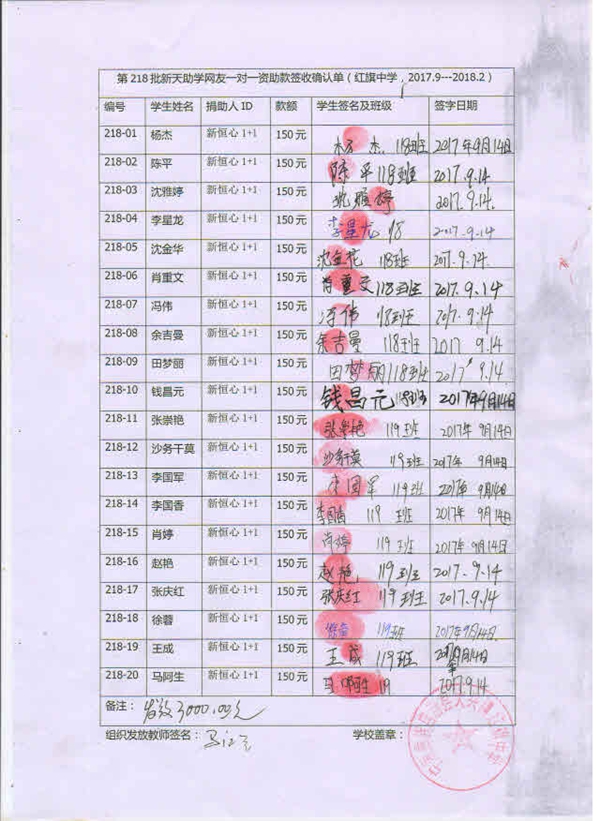 第218批新天助学网友一对一资助款签收确认单（红旗中学，2017.9---2018.2）
编号 学生姓名 捐助人ID 款额 学生签名及班级 签字日期
218-01 杨杰 新恒心1+1 150元 杨杰 118班 2017年9月14日
218-02 陈平 新恒心1+1 150元 陈平 118班 2017.9.14
218-03 沈雅婷 新恒心1+1 150元 沈雅婷 2017.9.14.
218-04 李星龙 新恒心1+1 150元 李星龙 2017.9.14
218-05 沈金华 新恒心1+1 150元 沈金花 118班 2017.9.14
218-06 肖重文 新恒心1+1 150元 肖重文 118班 2017.9.14
218-07 冯伟 新恒心1+1 150元 冯伟 118班 2017.9.14
218-08 余吉曼 新恒心1+1 150元 余吉曼 118班 2017 9.14
218-09 田梦丽 新恒心1+1 150元 田梦丽 118班 2017.9.14
218-10 钱昌元 新恒心1+1 150元 钱昌元 118班 2017年9月14日
218-11 张崇艳 新恒心1+1 150元 张崇艳 119班 2017年 9月14日
218-12 沙务干莫 新恒心1+1 150元 沙务干莫 119班 2017年 9月14日
218-13 李国军 新恒心1+1 150元 李国军 119班 2017年 9月14日
218-14 李国香 新恒心1+1 150元 李国香 119 班 2017年 9月14日
218-15 肖婷 新恒心1+1 150元 肖婷 119班 2017年 9月14日
218-16 赵艳 新恒心1+1 150元 赵艳 119班 2017.9.14
218-17 张庆红 新恒心1+1 150元 张庆红 119班 2017.9.14
218-18 徐蓉 新恒心1+1 150元 119班 2017年9月14日.
218-19 王成 新恒心1+1 150元 王成 119班
218-20 马阿生 新恒心1+1 150元 马阿生 119 2017.9.14
备注： 3000.00元
组织发放教师签名： 学校盖章：